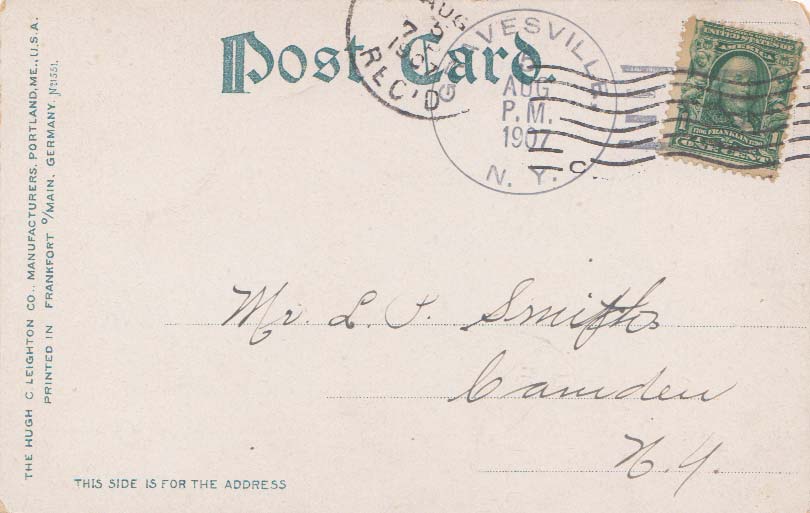 Post Card.
AUG
5
7 PM
1907
REC'D
GRAVESVILLE,
5
AUG
P.M.
1907
N. Y.
UNITED STATES OF
AMERICA
FRANKLIN
1
ONE CENT
Mr. L. P. Smith
Camden
N.Y.
THIS SIDE IS FOR THE ADDRESS
THE HUGH C. LEIGHTON CO., MANUFACTURERS, PORTLAND, ME., U.S.A.
PRINTED IN FRANKFORT o/MAIN, GERMANY. No 1551.